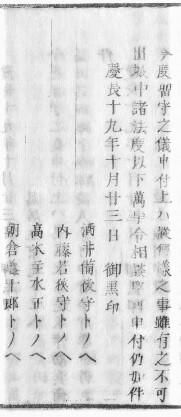 今度留守之儀申付上ハ縦何樣之事雖有之不可
出城中諸法度以下萬事令相談堅可申付仍如件
慶長十九年十月廿三日　御黒印
酒井備後守トノヘ
内藤若狹守トノヘ
高木主水正トノヘ
朝倉藤十郎トノヘ